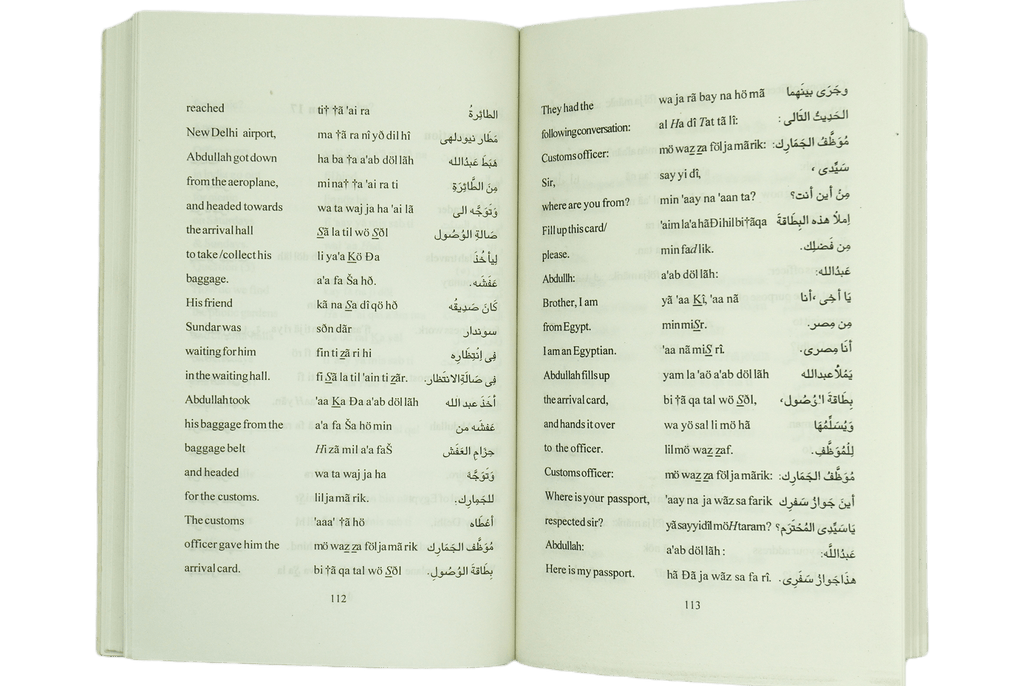 reached ti† †ã 'ai ra الطائِرةُ
New Delhi airport, ma †ã ra nî yð dil hî مَطَار نيودلهى
Abdullah got down ha ba †a a'ab döl lãh هَبَطَ عَبدُالله
from the aeroplane, mi na† †a 'ai ra ti مِنَ الطَّائِرَةِ
and headed towards wa ta waj ja ha 'ai lã وَتَوَجَّه الى
the arrival hall Sã la til wö Sðl صَالةِ الوُصُول
to take/collect his li ya'a Kö Ða لِيَأخُذَ
baggage. a'a fa Ša hð. عَفَشَه.
His friend kã na Sa dî qö hð كَانَ صَدِيقُه
Sundar was sðn dãr سوندار
waiting for him fin ti zã ri hi فِى اِنتِظَارِه
in the waiting hall. fi Sã la til 'ain ti zãr. فِى صَالَةِ الانتَظار.
Abdullah took 'aa Ka Ða a'ab döl lãh أخَذَ عبد الله
his baggage from the a'a fa Ša hö min عَفشَه من
baggage belt Hi zã mil a'a faŠ حِزَامِ العَفَش
and headed wa ta waj ja ha وَتَوَجَّهَ
for the customs. lil ja mã rik. للجَمِارِك.
The customs 'aaa' †ã hö أعْطَاه
officer gave him the mö waz za föl ja mã rik مُوَظَّف الجَمَارِك
arrival card. bi †ã qa tal wö Sðl بِطَاقَةَ الوُصُولِ.
112
They had the wa ja rã bay na hö mã وجَرَى بينَهما
following conversation: al Ha dî Tat tã lî: الحَدِيثُ التَالى :
Customs officer: mö waz za föl ja mã rik: مُوَظَّفُ الجَمَارِك:
Sir, say yi dî, سَيِّدِى ،
where are you from? min 'aay na 'aan ta? مِنْ أين أنت؟
Fill up this card/ 'aim la'a hãÐihil bi†ãqa اِملأ هذه البِطَاقةَ
please. min fad lik. مِن فَضلِك.
Abdullh: a'ab döl lãh: عَبدُالله:
Brother, I am yã 'aa Kî, 'aa nã يَا أخِى ،أنا
from Egypt. min miSr. مِن مِصر.
I am an Egyptian. 'aa nã miS rî. أنَا مِصرى.
Abdullah fills up yam la 'aö a'ab döl lãh يَملأُ عبدالله
the arrival card, bi †ã qa tal wö Sðl, بِطَاقَةَ الوُصُول،
and hands it over wa yö sal li mö hã وَيُسَلِّمُهَا
to the officer. lil mö waz zaf. لِلمُوَظَّفِ.
Customs officer: mö waz za föl ja mã rik: مُوَظَّفُ الجَمَارِك:
Where is your passport, 'aay na ja wãz sa farik أينَ جَوازُ سَفَرِك
respected sir? yã sayyidil möHtaram? يَاسَيِّدِى المُحْتَرَم؟
Abdullah: a'ab döl lãh : عَبدُاللَّه:
Here is my passport. hã Ðã ja wãz sa fa rî. هذَاجَوازُ سَفَرِى.
113